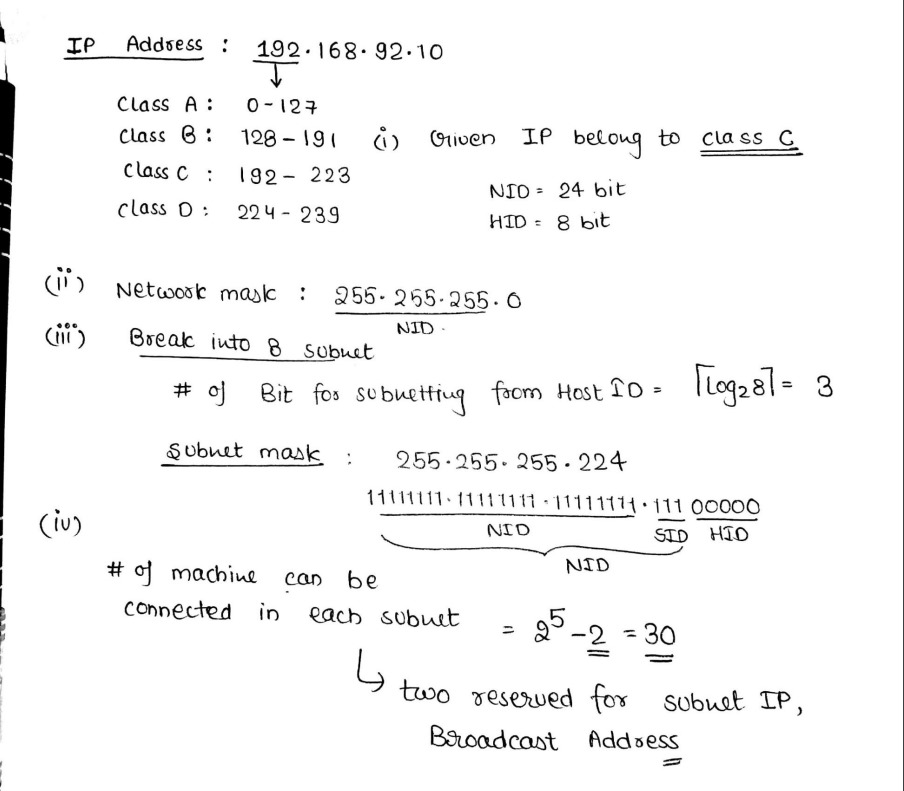 IP Address : 192.168.92.10
Class A : 0-127
Class B : 128-191 (i) Given IP belong to class C
Class C : 192 - 223
NID = 24 bit
Class D : 224 - 239
HID = 8 bit
(ii) Network mask : 255.255.255.0
NID.
(iii) Break into 8 subnet
# of Bit for subnetting from Host ID = ⌈log₂8⌉ = 3
Subnet mask : 255.255.255.224
11111111.11111111.11111111.111 00000
(iv)
NID SID HID
NID
# of machine can be
connected in each subnet = 2⁵ - 2 = 30
↳ two reserved for subnet IP,
Broadcast Address